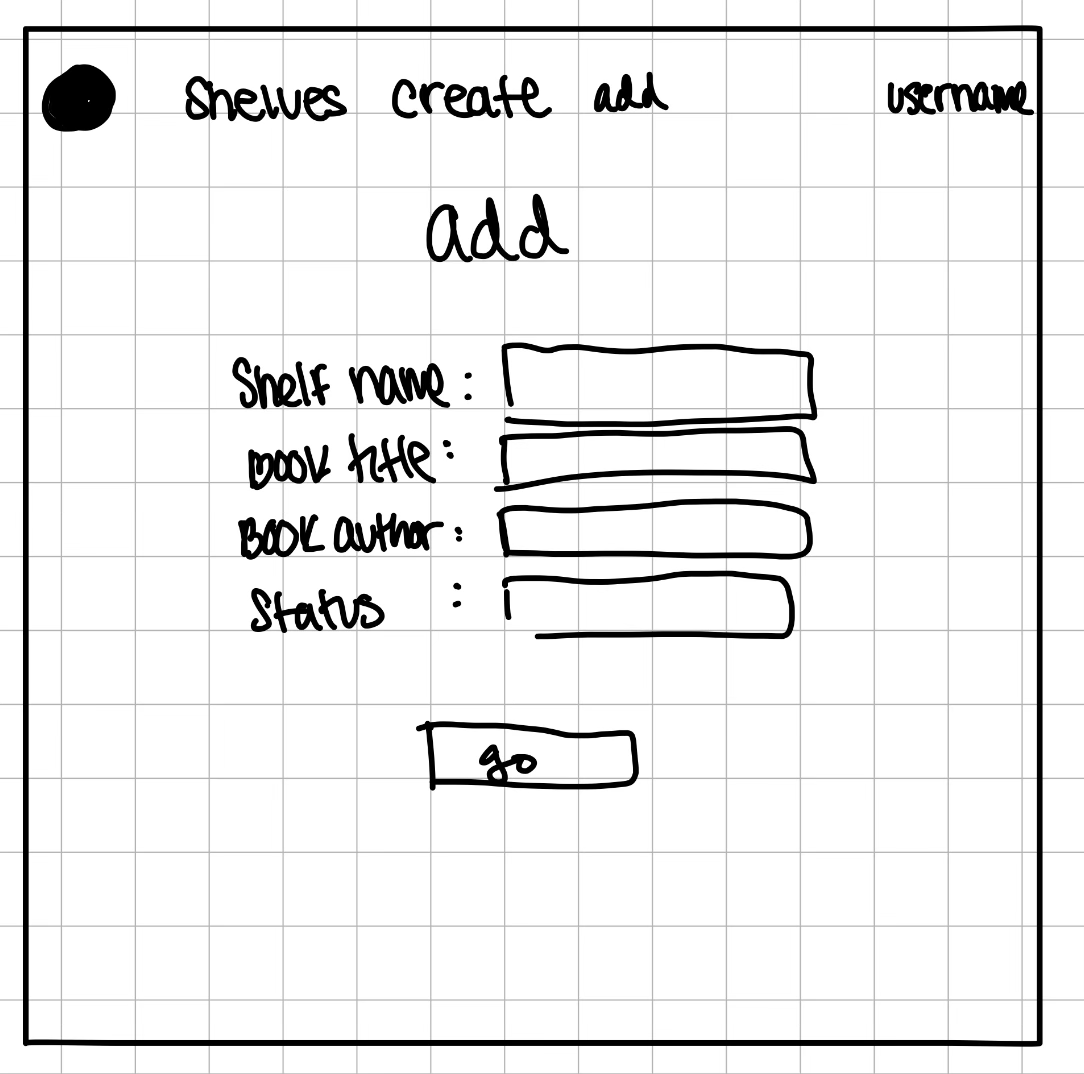 Shelves create add username
add
Shelf name:
Book title:
Book author:
Status :
go